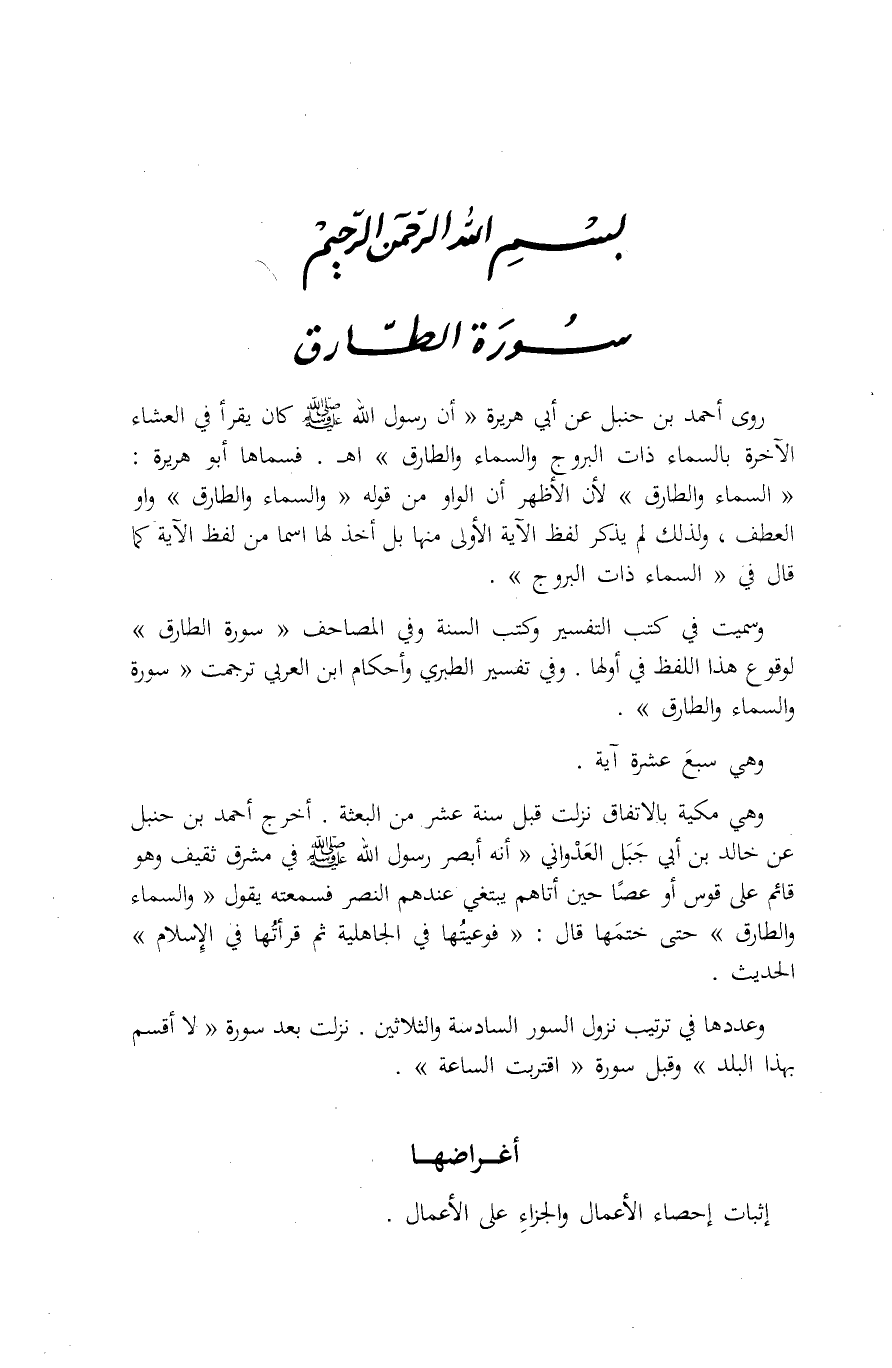 بسم الله الرحمن الرحيم
سُورَة الطّارق
روى أحمد بن حنبل عن أبي هريرة « أن رسول الله ﷺ كان يقرأ في العشاء
الآخرة بالسماء ذات البروج والسماء والطارق » اهـ . فسماها أبو هريرة :
« السماء والطارق » لأن الأظهر أن الواو من قوله « والسماء والطارق » واو
العطف ، ولذلك لم يذكر لفظ الآية الأولى منها بل أخذ لها اسما من لفظ الآية كما
قال في « السماء ذات البروج » .
وسميت في كتب التفسير وكتب السنة وفي المصاحف « سورة الطارق »
لوقوع هذا اللفظ في أولها . وفي تفسير الطبري وأحكام ابن العربي ترجمت « سورة
والسماء والطارق » .
وهي سبعَ عشرة آية .
وهي مكية بالاتفاق نزلت قبل سنة عشر من البعثة . أخرج أحمد بن حنبل
عن خالد بن أبي جَبَل العَدْواني « أنه أبصر رسول الله ﷺ في مشرق ثقيف وهو
قائم على قوس أو عصًا حين أتاهم يبتغي عندهم النصر فسمعته يقول « والسماء
والطارق » حتى ختمَها قال : « فوعيتُها في الجاهلية ثم قرأتُها في الإسلام »
الحديث .
وعددها في ترتيب نزول السور السادسة والثلاثين . نزلت بعد سورة « لا أقسم
بهذا البلد » وقبل سورة « اقتربت الساعة » .
أغـراضهـا
إثبات إحصاء الأعمال والجزاءِ على الأعمال .